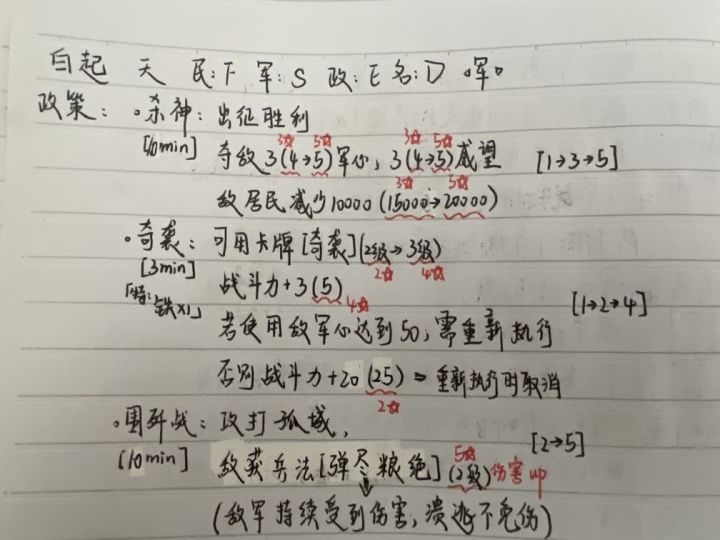 白起 天 民:F 军:S 政:E 名:D 。军。
政策: 。杀神: 出征胜利
3☆ 5☆ 3☆ 5☆
[6min] 夺敌3(4→5)军心, 3(4→5)威望 [1→3→5]
3☆ 5☆
敌居民减少10000(15000→20000)
。奇袭: 可用卡牌[奇袭](2级→3级)
[3min] 2☆ 4☆
战斗力+3(5)
「特:铁×1」 4☆ [1→2→4]
若使用敌军心达到50, 需重新执行
否则战斗力+20(25) ⇒ 重新执行时取消
2☆
。围歼战: 攻打孤城,
[10min] [2→5]
5☆
敌获兵法[弹尽粮绝](2级)伤害up
(敌军持续受到伤害, 溃逃不免伤)